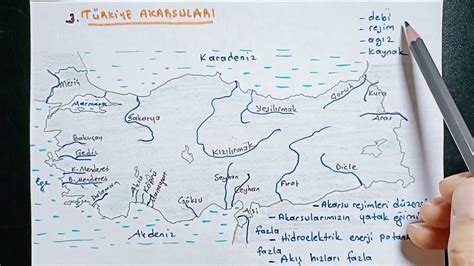 3. TÜRKİYE AKARSULARI
- debi
- rejim
- ağız
- kaynak
Karadeniz
Meriç
Marmara
Sakarya
Yeşilırmak
Çoruh
Kura
Aras
Bakırçay
Gediz
K. Menderes
B. Menderes
Ege
Dalaman
Aksu
Köprü
Manavgat
Kızılırmak
Göksu
Seyhan
Ceyhan
Asi
Fırat
Dicle
Akdeniz
- Akarsu rejimleri düzensi
- Akarsularımızın yatak eğimi
fazla
- Hidroelektrik enerji potans
fazla
- Akış hızları fazla